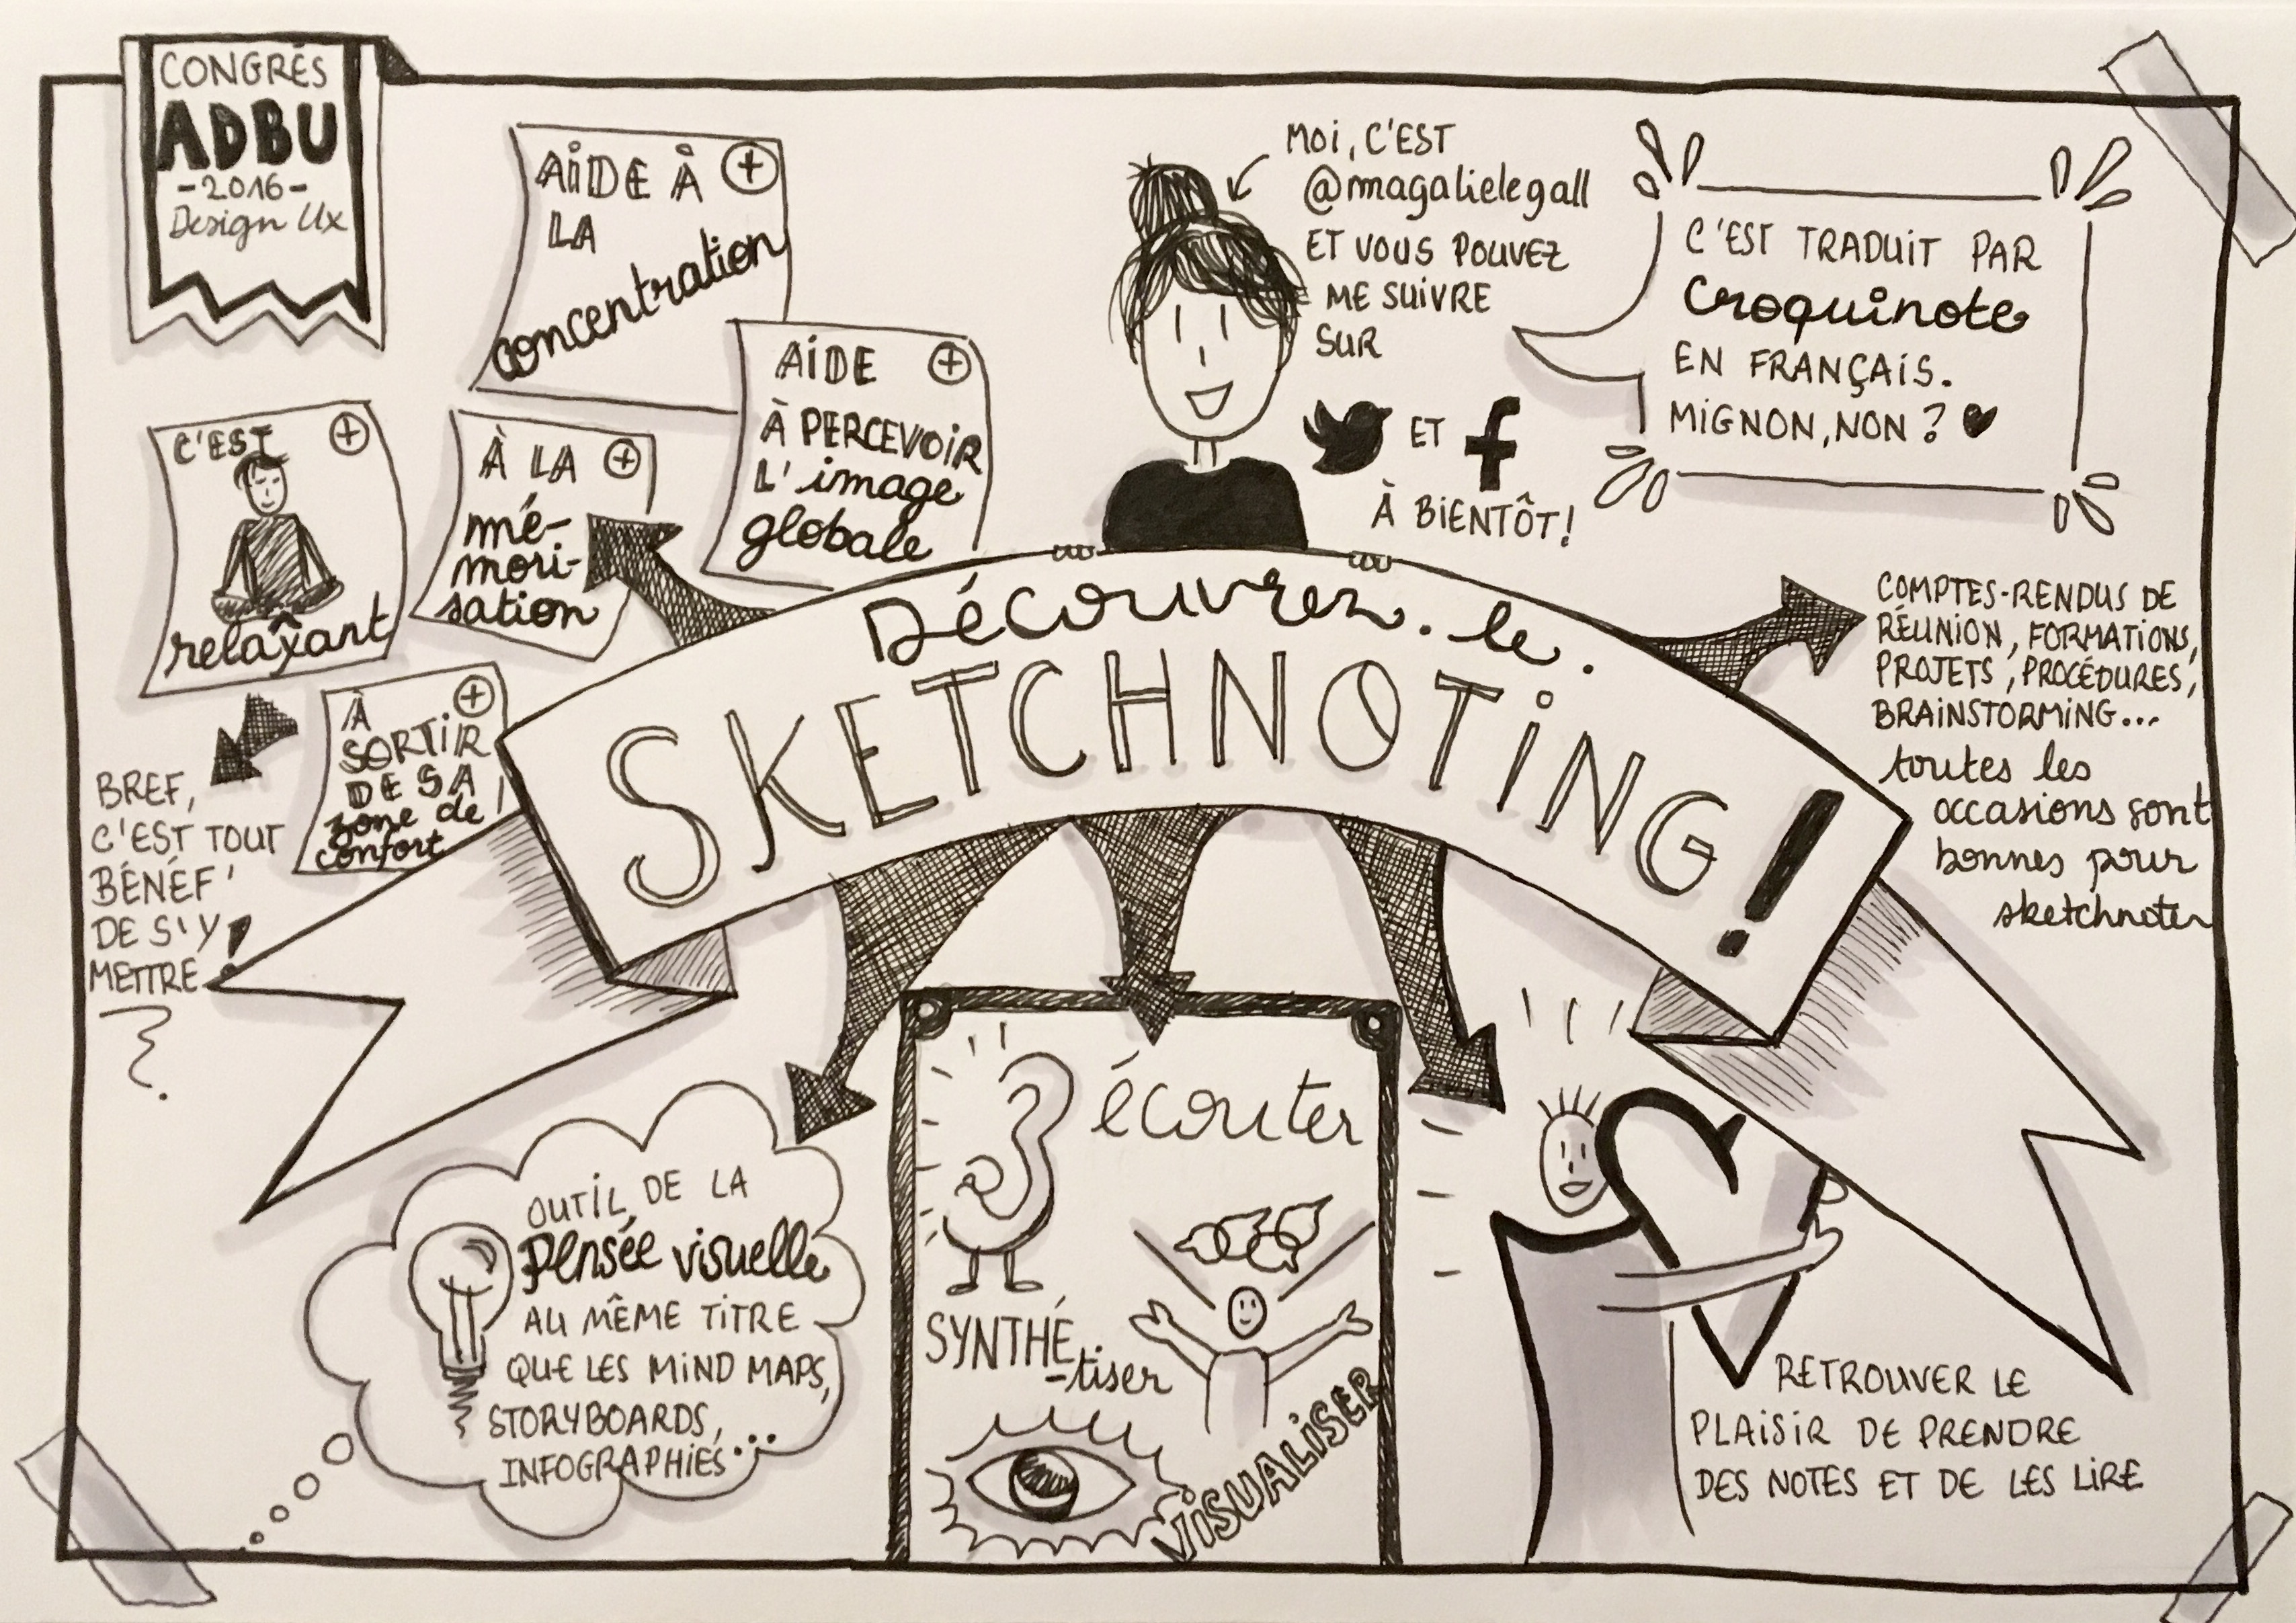 CONGRÉS
ADBU
-2016-
Design Ux
AIDE À
LA
concentration
AIDE
À PERCEVOIR
L'image
globale
C'EST
relaxant
À LA
mé-
mori-
sation
À
SORTIR
DE SA
zone de
confort
!
BREF,
C'EST TOUT
BÉNÉF'
DE S'Y
METTRE !
MOI, C'EST
@magalielegall
ET VOUS POUVEZ
ME SUIVRE
SUR
ET f
À BIENTÔT!
C'EST TRADUIT PAR
Croquinote
EN FRANÇAIS.
MIGNON, NON ? ♥
Découvrez. le.
SKETCHNOTING!
COMPTES-RENDUS DE
RÉUNION, FORMATIONS,
PROJETS, PROCÉDURES,
BRAINSTORMING...
toutes les
occasions sont
bonnes pour
sketchnoter
OUTIL DE LA
Pensée visuelle
AU MÊME TITRE
QUE LES MIND MAPS,
STORYBOARDS,
INFOGRAPHIES...
écouter
SYNTHÉ
-tiser
VISUALISER
RETROUVER LE
PLAISIR DE PRENDRE
DES NOTES ET DE LES LIRE